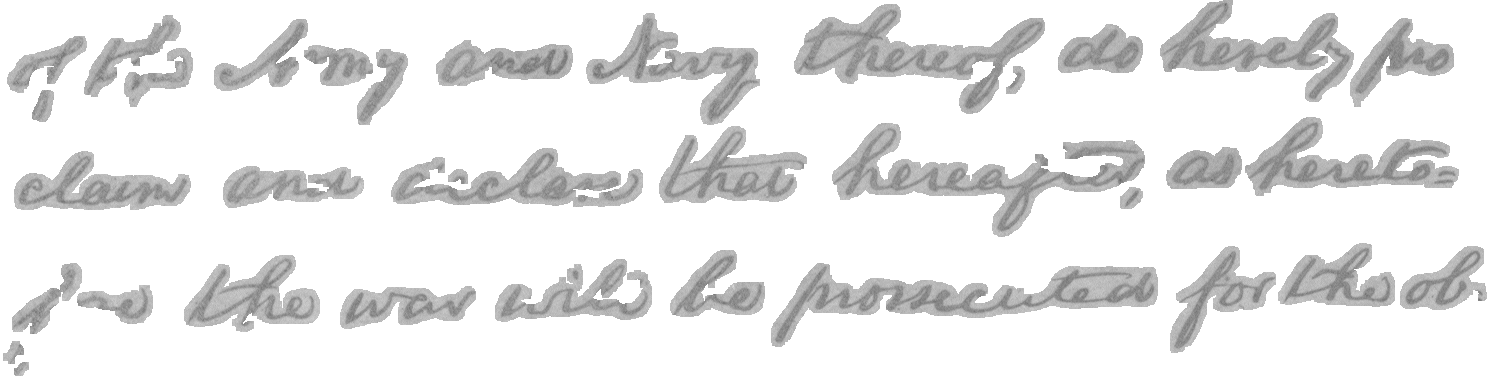 of the Army and Navy thereof, do hereby pro
claim and declare that hereafter, as hereto=
fore the war will be prossecuted for the ob-